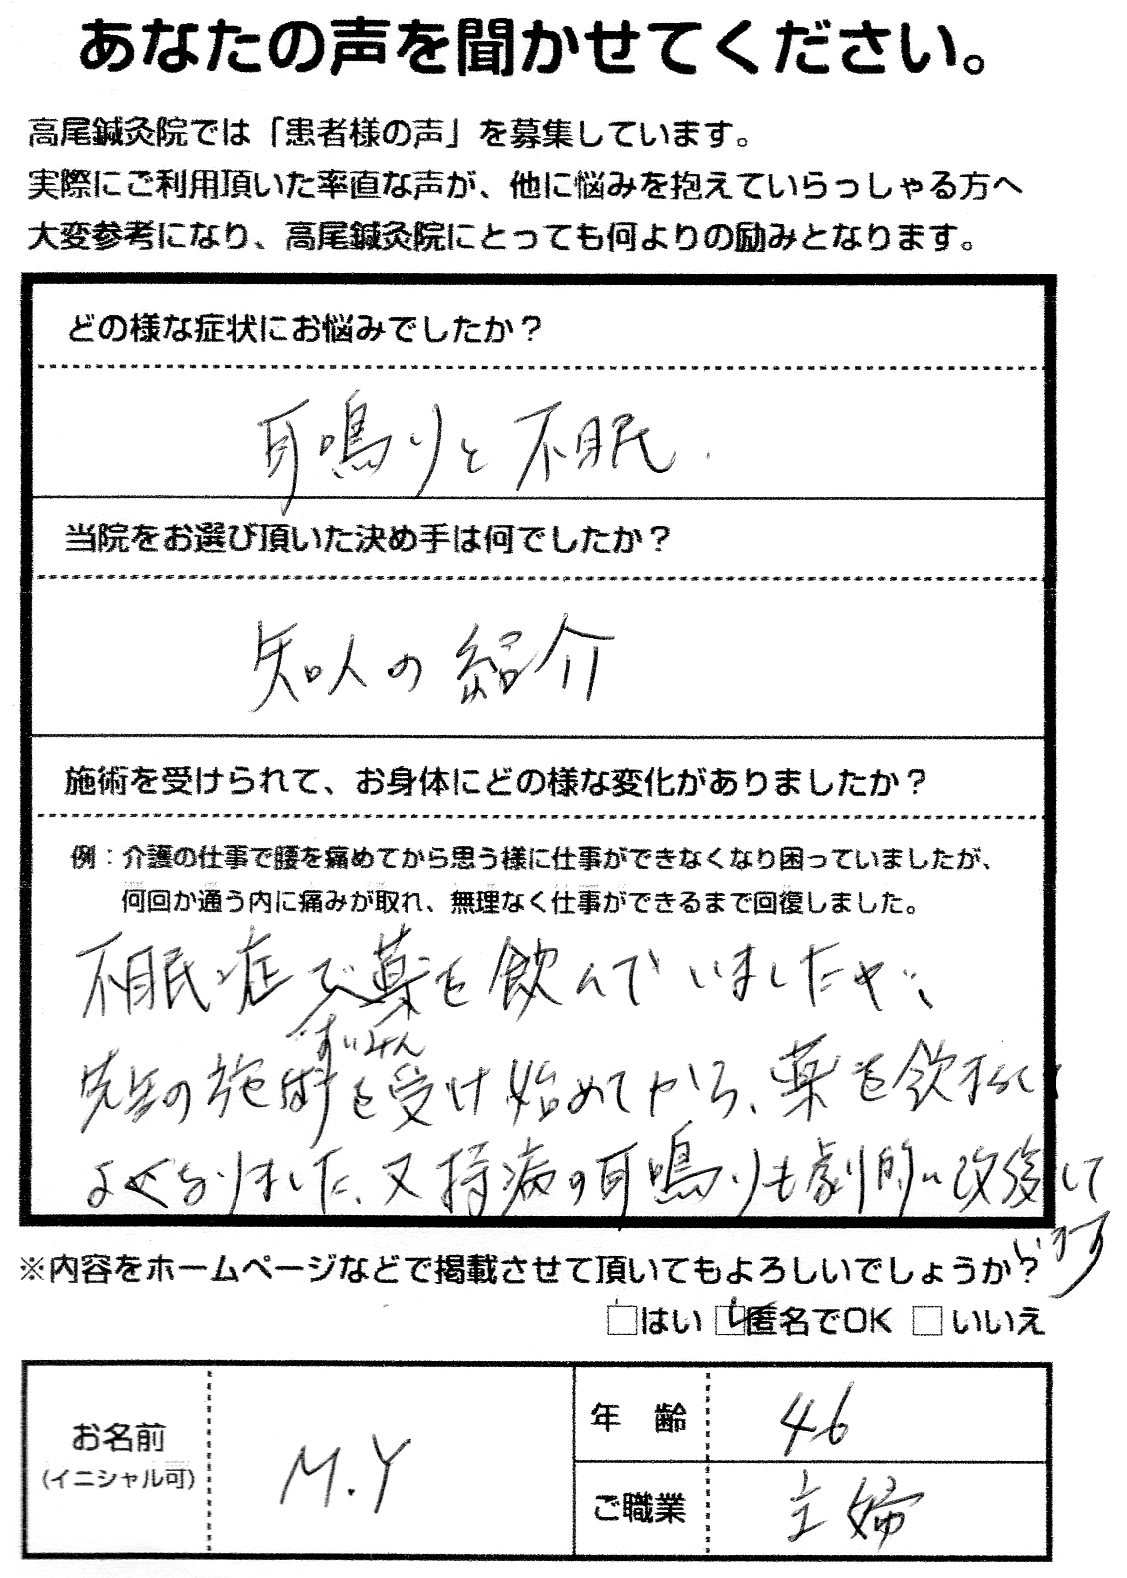 あなたの声を聞かせてください。
高尾鍼灸院では「患者様の声」を募集しています。
実際にご利用頂いた率直な声が、他に悩みを抱えていらっしゃる方へ
大変参考になり、高尾鍼灸院にとっても何よりの励みとなります。
どの様な症状にお悩みでしたか？
耳鳴りと不眠.
当院をお選び頂いた決め手は何でしたか？
知人の紹介
施術を受けられて、お身体にどの様な変化がありましたか？
例：介護の仕事で腰を痛めてから思う様に仕事ができなくなり困っていましたが、
何回か通う内に痛みが取れ、無理なく仕事ができるまで回復しました。
不眠症で薬を飲んでいましたが、
すいみん
先生の施術を受け始めてから、薬を飲まなくて
よくなりました、又持病の耳鳴りも劇的に改善して
います
※内容をホームページなどで掲載させて頂いてもよろしいでしょうか？
□はい ☑匿名でOK □いいえ
お名前
(イニシャル可)
M.Y
年 齢
46
ご職業
主婦